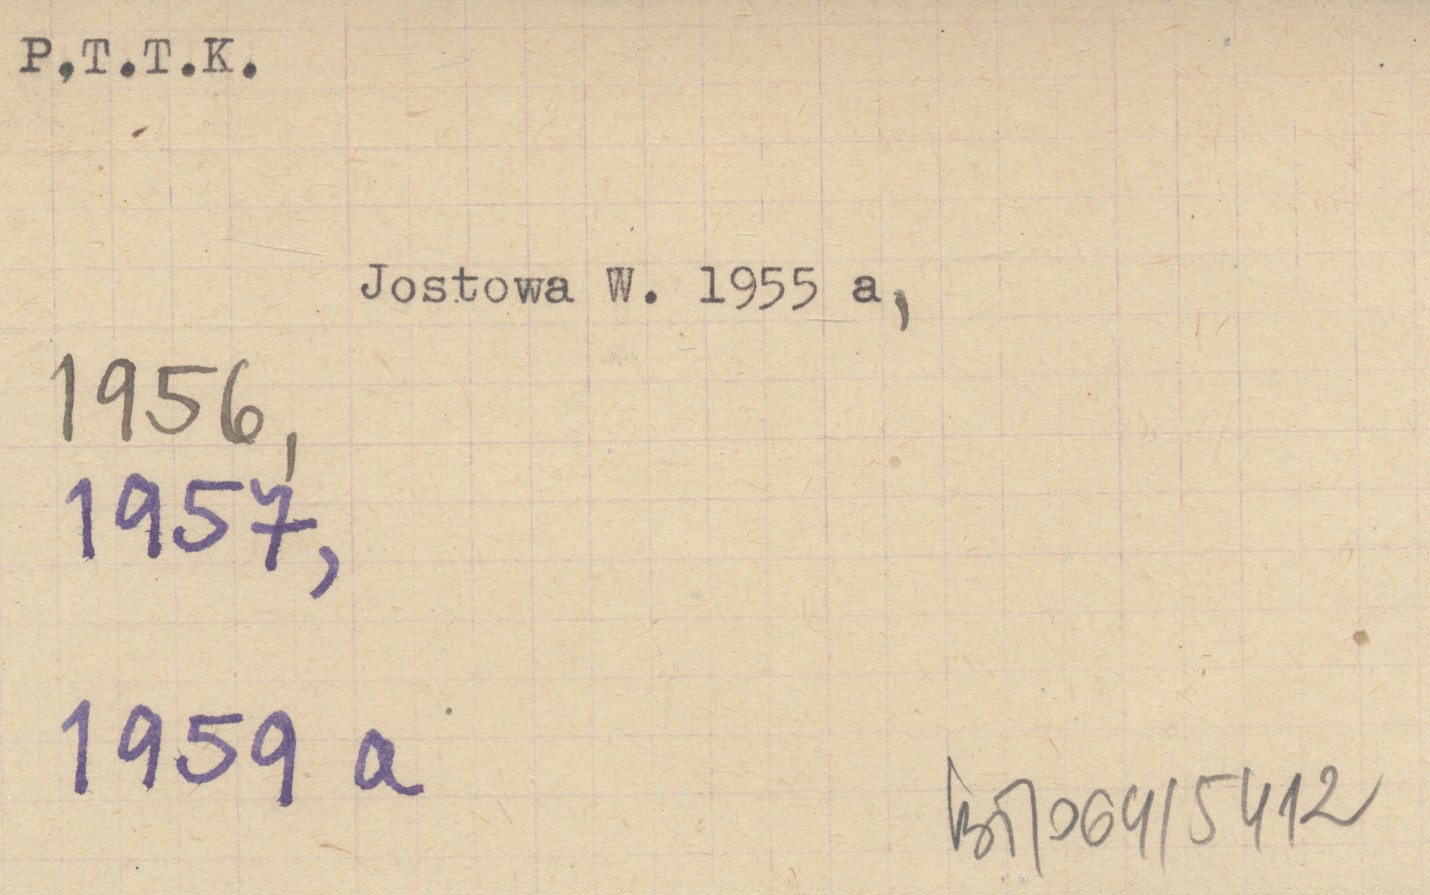 P.T.T.K.
Jostowa W. 1955 a,
1956,
1957,
1959 a
064/5412